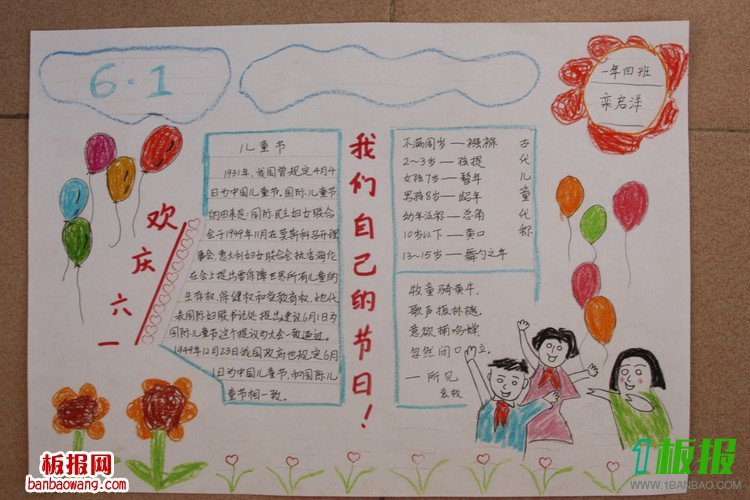 6·1
一年四班
栾启洋
欢庆六一
儿童节
1931年,我国曾规定4月4
日为中国儿童节。国际儿童节
的由来是:国际民主妇女联合
会于1949年11月在莫斯科召开理
事会,意大利妇女联合会执
在会上提出要保障世界所有儿童的
生存权、保健权和受教育权,她代
表国际妇联书记处提出建议6月1日为
国际儿童节这个提议为大会一致通过。
1949年12月23日我国政府也规定6月
1日为中国儿童节,和国际儿
童节相一致。
我们自己的节日!
古代儿童代称
不满周岁——襁褓
2~3岁——孩提
女孩7岁——髫年
男孩8岁——龆年
幼年泛称——总角
10岁以下——黄口
13~15岁——舞勺之年
牧童骑黄牛,
歌声振林樾。
意欲捕鸣蝉,
忽然闭口立。
——所见
袁枚
板报网
banbaowang.com
1板报
WWW.1BANBAO.COM